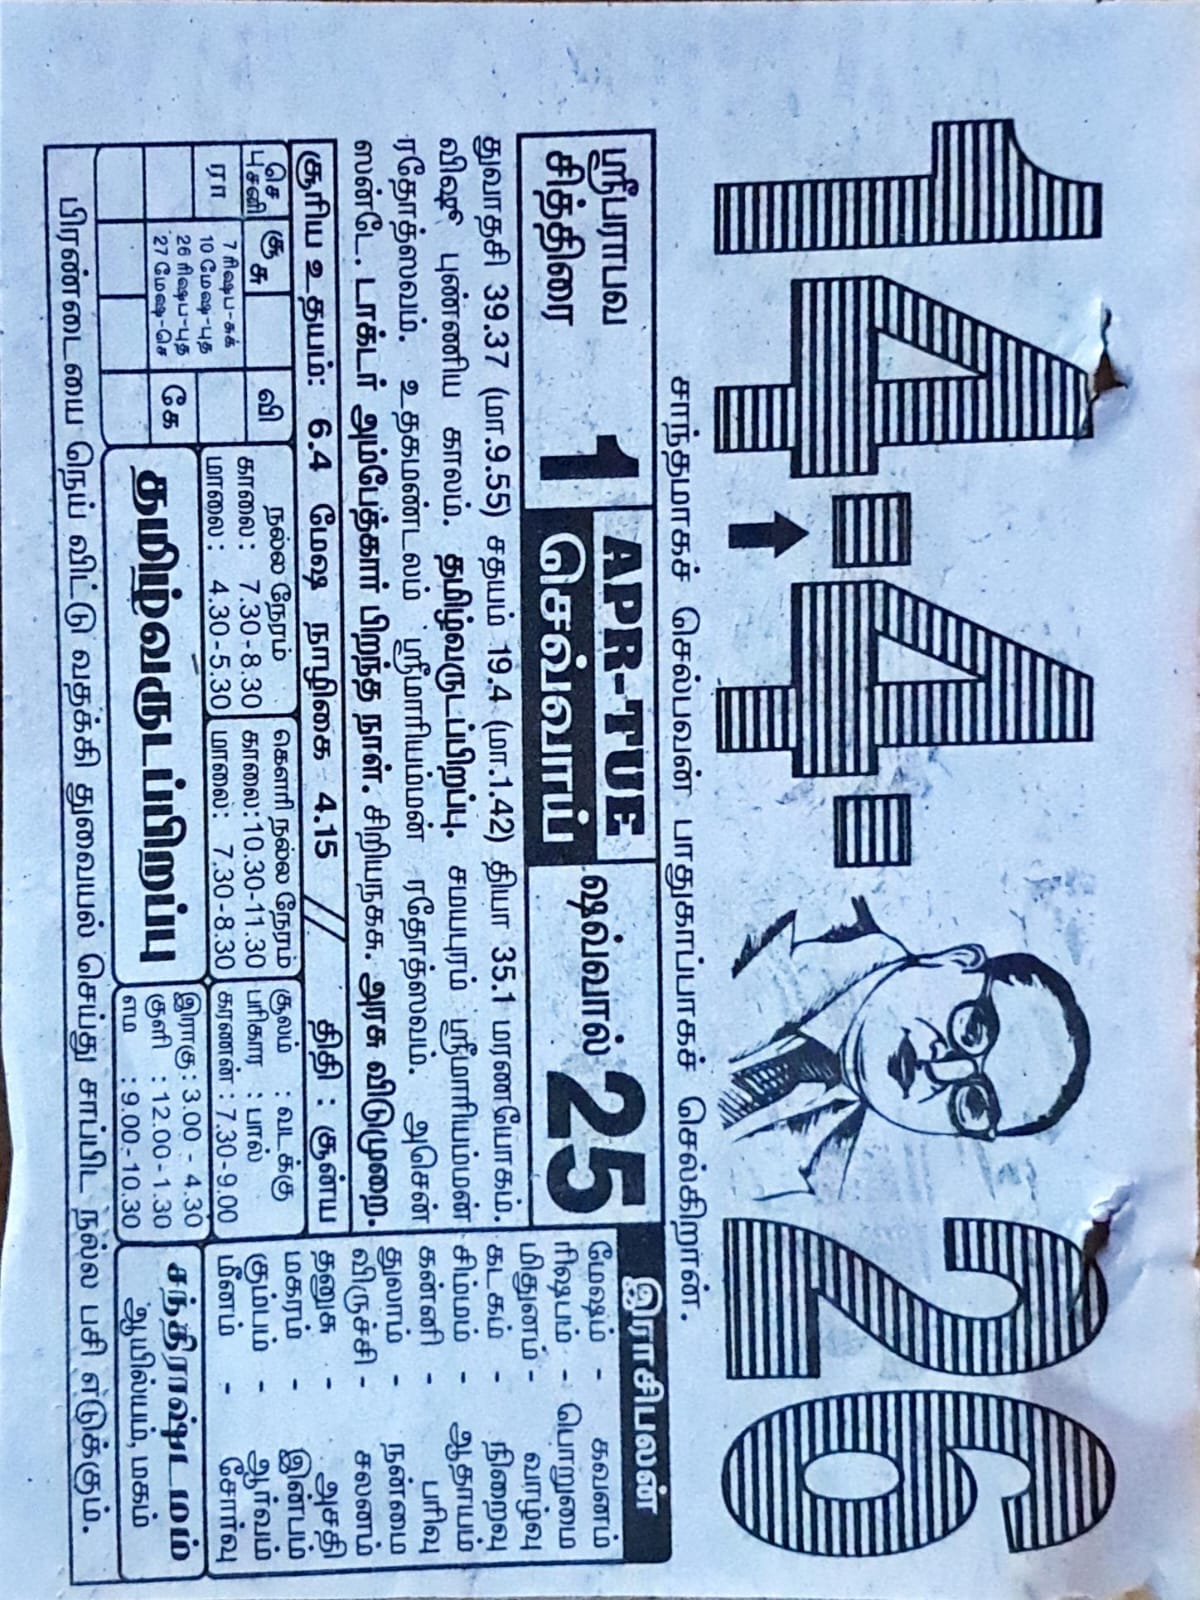 14.4.26
சாந்தமாகச் செல்பவன் பாதுகாப்பாகச் செல்கிறான்.
ஸ்ரீபராபவ
சித்திரை 1
APR-TUE
செவ்வாய்
ஷவ்வால் 25
துவாதசி 39.37 (மா.9.55) சதயம் 19.4 (மா.1.42) தியா 35.1 மரணயோகம்.
விஷு புண்ணிய காலம். தமிழ்வருடப்பிறப்பு. சமயபுரம் ஸ்ரீமாரியம்மன்
ரதோத்ஸவம். உதகமண்டலம் ஸ்ரீமாரியம்மன் ரதோத்ஸவம். அசென்
ஸன்டே. டாக்டர் அம்பேத்கார் பிறந்த நாள். சிறியநகசு. அரசு விடுமுறை.
சூரிய உதயம்: 6.4 மேஷ நாழிகை 4.15 // திதி : சூன்ய
செ
புசனி
சூ
சு
வி
ரா
கே
7 ரிஷப-சுக்
10 மேஷ-புத
26 ரிஷப-புத
27 மேஷ-செ
நல்ல நேரம்
காலை: 7.30-8.30
மாலை: 4.30-5.30
கௌரி நல்ல நேரம்
காலை:10.30-11.30
மாலை: 7.30-8.30
சூலம் : வடக்கு
பரிகார : பால்
கரணன் : 7.30-9.00
தமிழ்வருடப்பிறப்பு
இராகு : 3.00 - 4.30
குளி : 12.00-1.30
எம : 9.00-10.30
இராசிபலன்
மேஷம் - கவனம்
ரிஷபம் - பொறுமை
மிதுனம் - வாழ்வு
கடகம் - நிறைவு
சிம்மம் - ஆதாயம்
கன்னி - பரிவு
துலாம் - நன்மை
விருச்சி - சலனம்
தனுசு - அசதி
மகரம் - இன்பம்
கும்பம் - ஆர்வம்
மீனம் - சோர்வு
சந்திராஷ்டமம்
ஆயில்யம், மகம்
பிரண்டையை நெய் விட்டு வதக்கி துவையல் செய்து சாப்பிட நல்ல பசி எடுக்கும்.